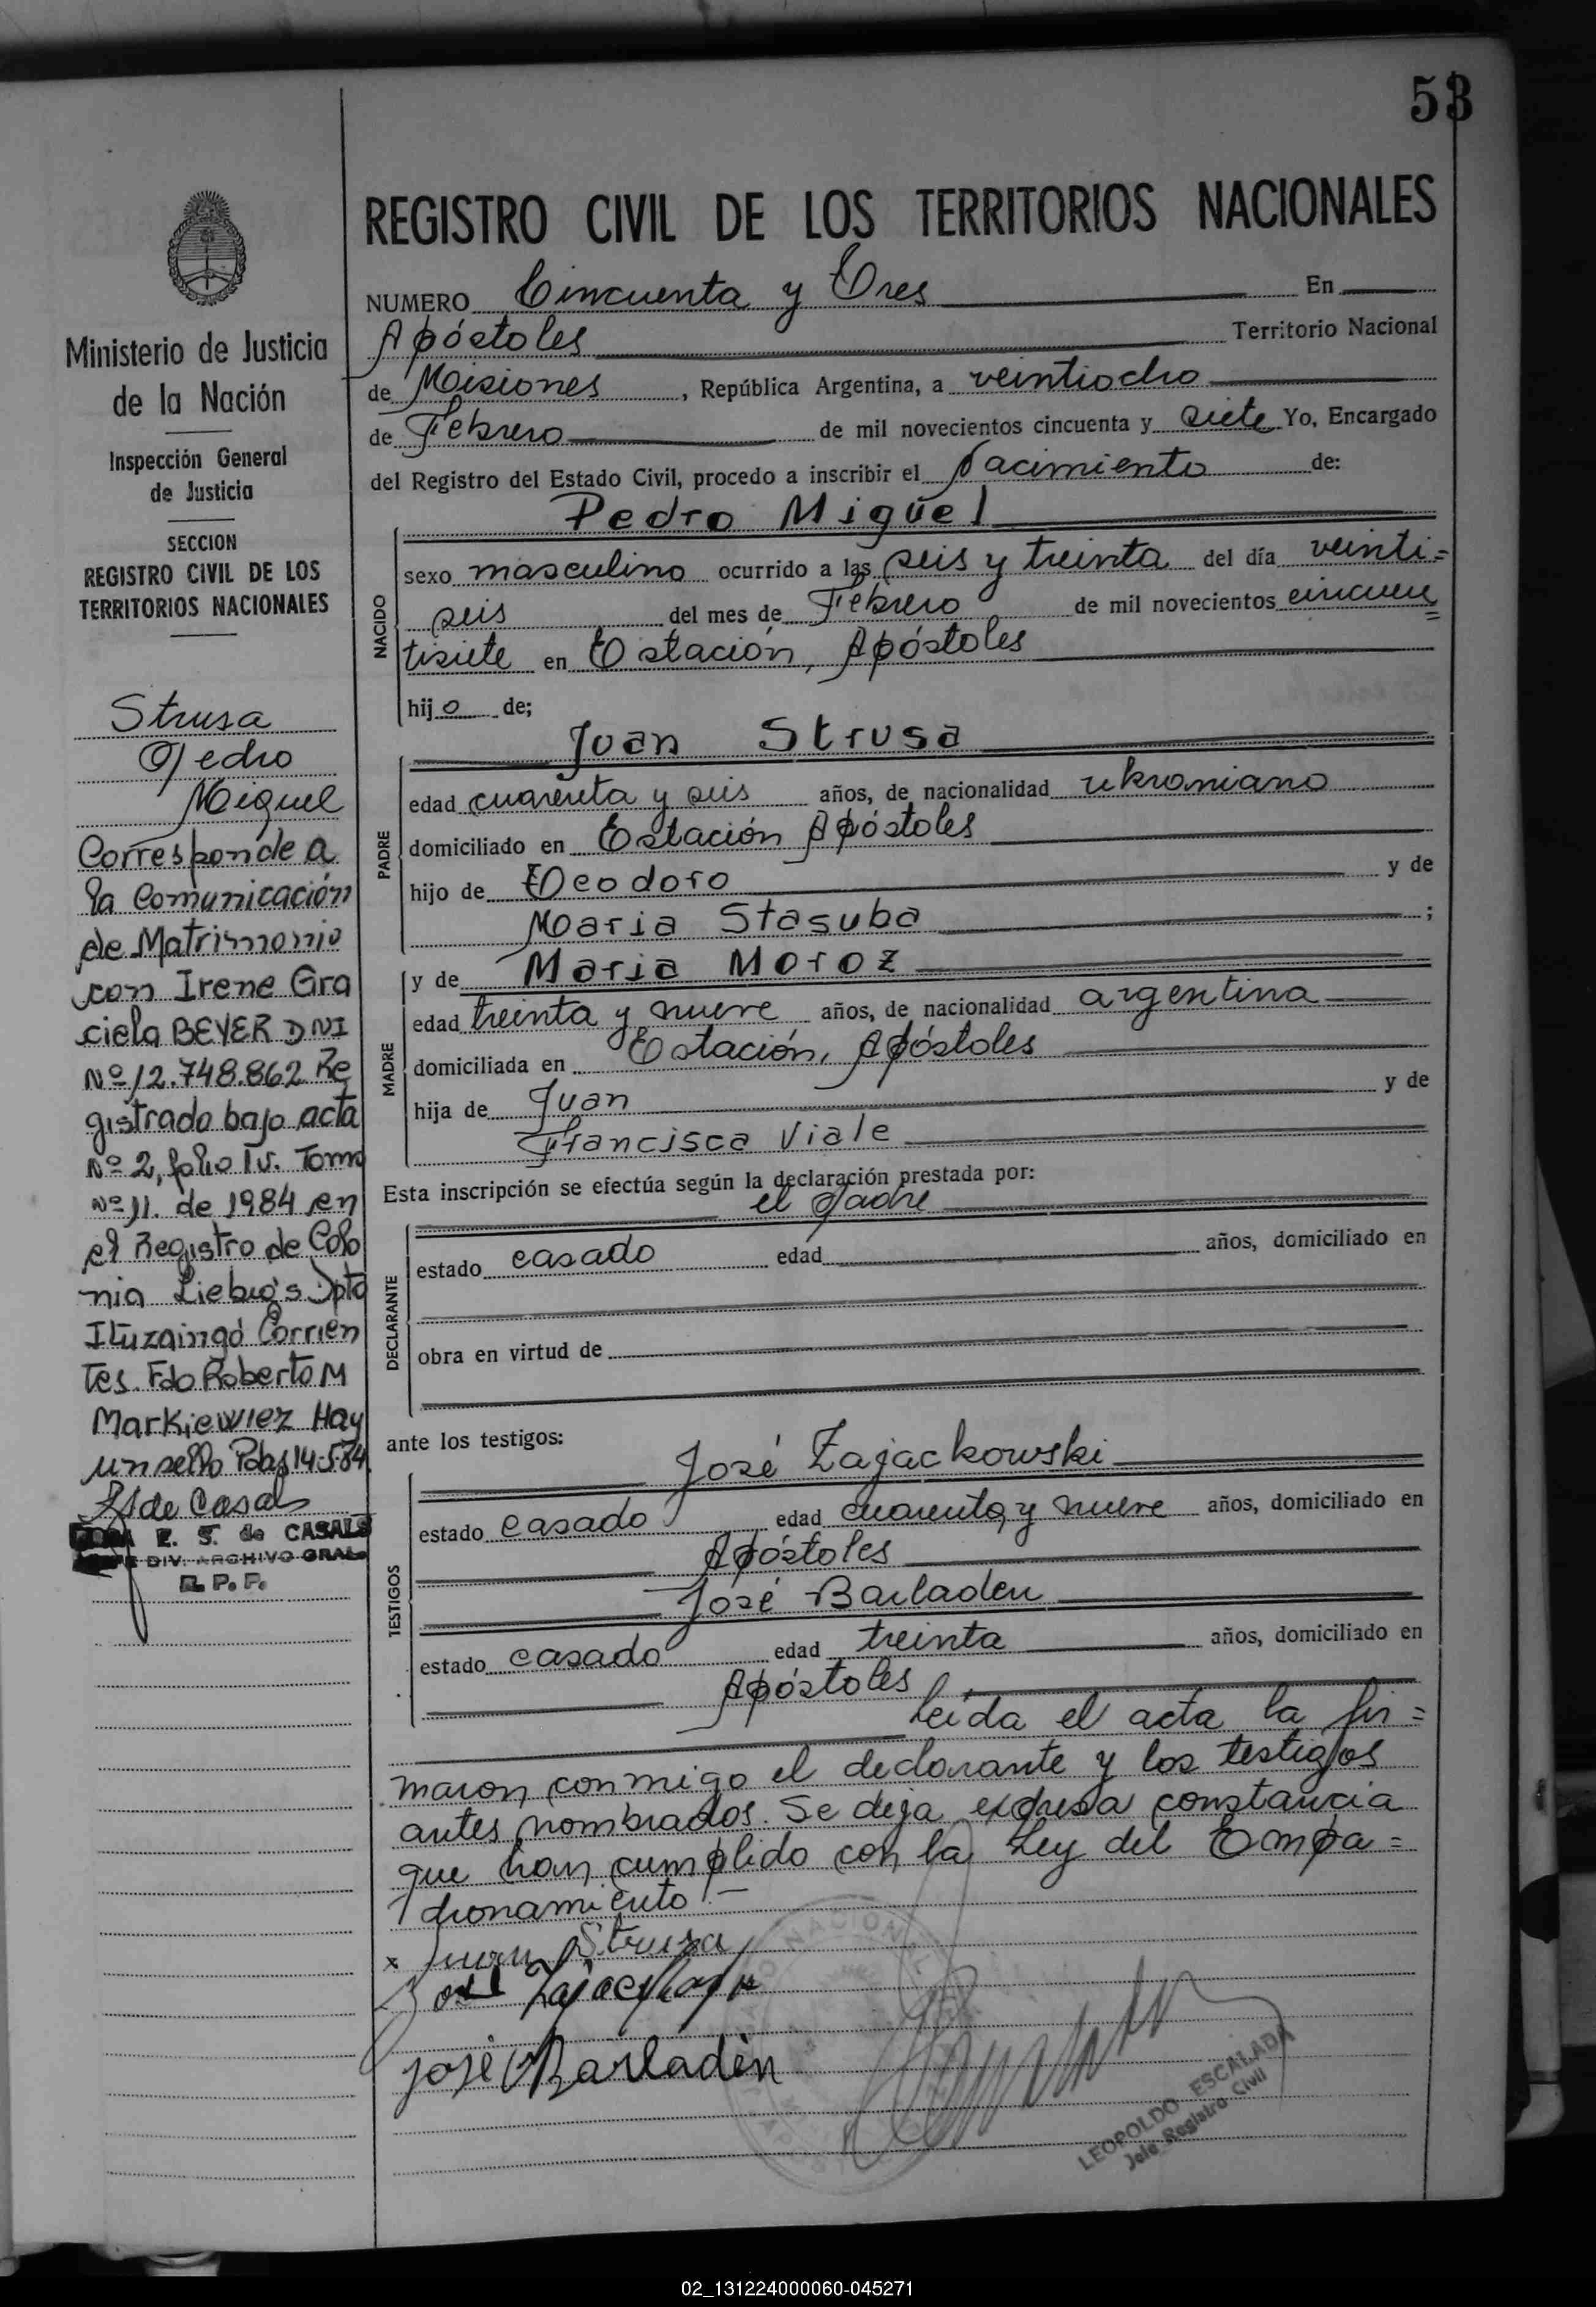 53
REGISTRO CIVIL DE LOS TERRITORIOS NACIONALES
NUMERO Cincuenta y Tres En
Apóstoles Territorio Nacional
de Misiones, República Argentina, a veintiocho
de Febrero de mil novecientos cincuenta y siete Yo, Encargado
del Registro del Estado Civil, procedo a inscribir el Nacimiento de:
Pedro Miguel
NACIDO
sexo masculino ocurrido a las seis y treinta del día veinti=
seis del mes de Febrero de mil novecientos cincuen=
tisiete en Estación, Apóstoles
hijo de;
Juan Strusa
PADRE
edad cuarenta y seis años, de nacionalidad ukraniano
domiciliado en Estación Apóstoles
hijo de Teodoro y de
Maria Stasuba ;
y de Maria Moroz
MADRE
edad treinta y nueve años, de nacionalidad argentina
domiciliada en Estación, Apóstoles
hija de Juan y de
Francisca Viale
Esta inscripción se efectúa según la declaración prestada por:
el padre
DECLARANTE
estado casado edad años, domiciliado en
obra en virtud de
ante los testigos:
José Zajackowski
TESTIGOS
estado casado edad cuarenta y nueve años, domiciliado en
Apóstoles
José Barladen
estado casado edad treinta años, domiciliado en
Apóstoles
Leida el acta la fir=
maron conmigo el declarante y los testigos
antes nombrados. Se deja expresa constancia
que han cumplido con la Ley del Empa=
dronamiento.—
x Juan Strusa
José
José Barladen
LEOPOLDO ESCALADA
Jefe Registro Civil
Ministerio de Justicia
de la Nación
Inspección General
de Justicia
SECCION
REGISTRO CIVIL DE LOS
TERRITORIOS NACIONALES
Strusa
Pedro
Miguel
Corresponde a
la Comunicación
de Matrimonio
con Irene Gra
ciela BEYER DNI
Nº 12.748.862 Re
gistrado bajo acta
Nº 2, folio Tv. Tomo
Nº 11. de 1984 en
el Registro de Colo
nia Liebig's Dpto
Ituzaingó Corrien
tes. Fdo Roberto M
Markiewiez Hay
un sello Pdas 14.5.84
de Casals
E. S. de CASALS
DIV. ARCHIVO GRAL.
R. P. P.
02_131224000060-045271